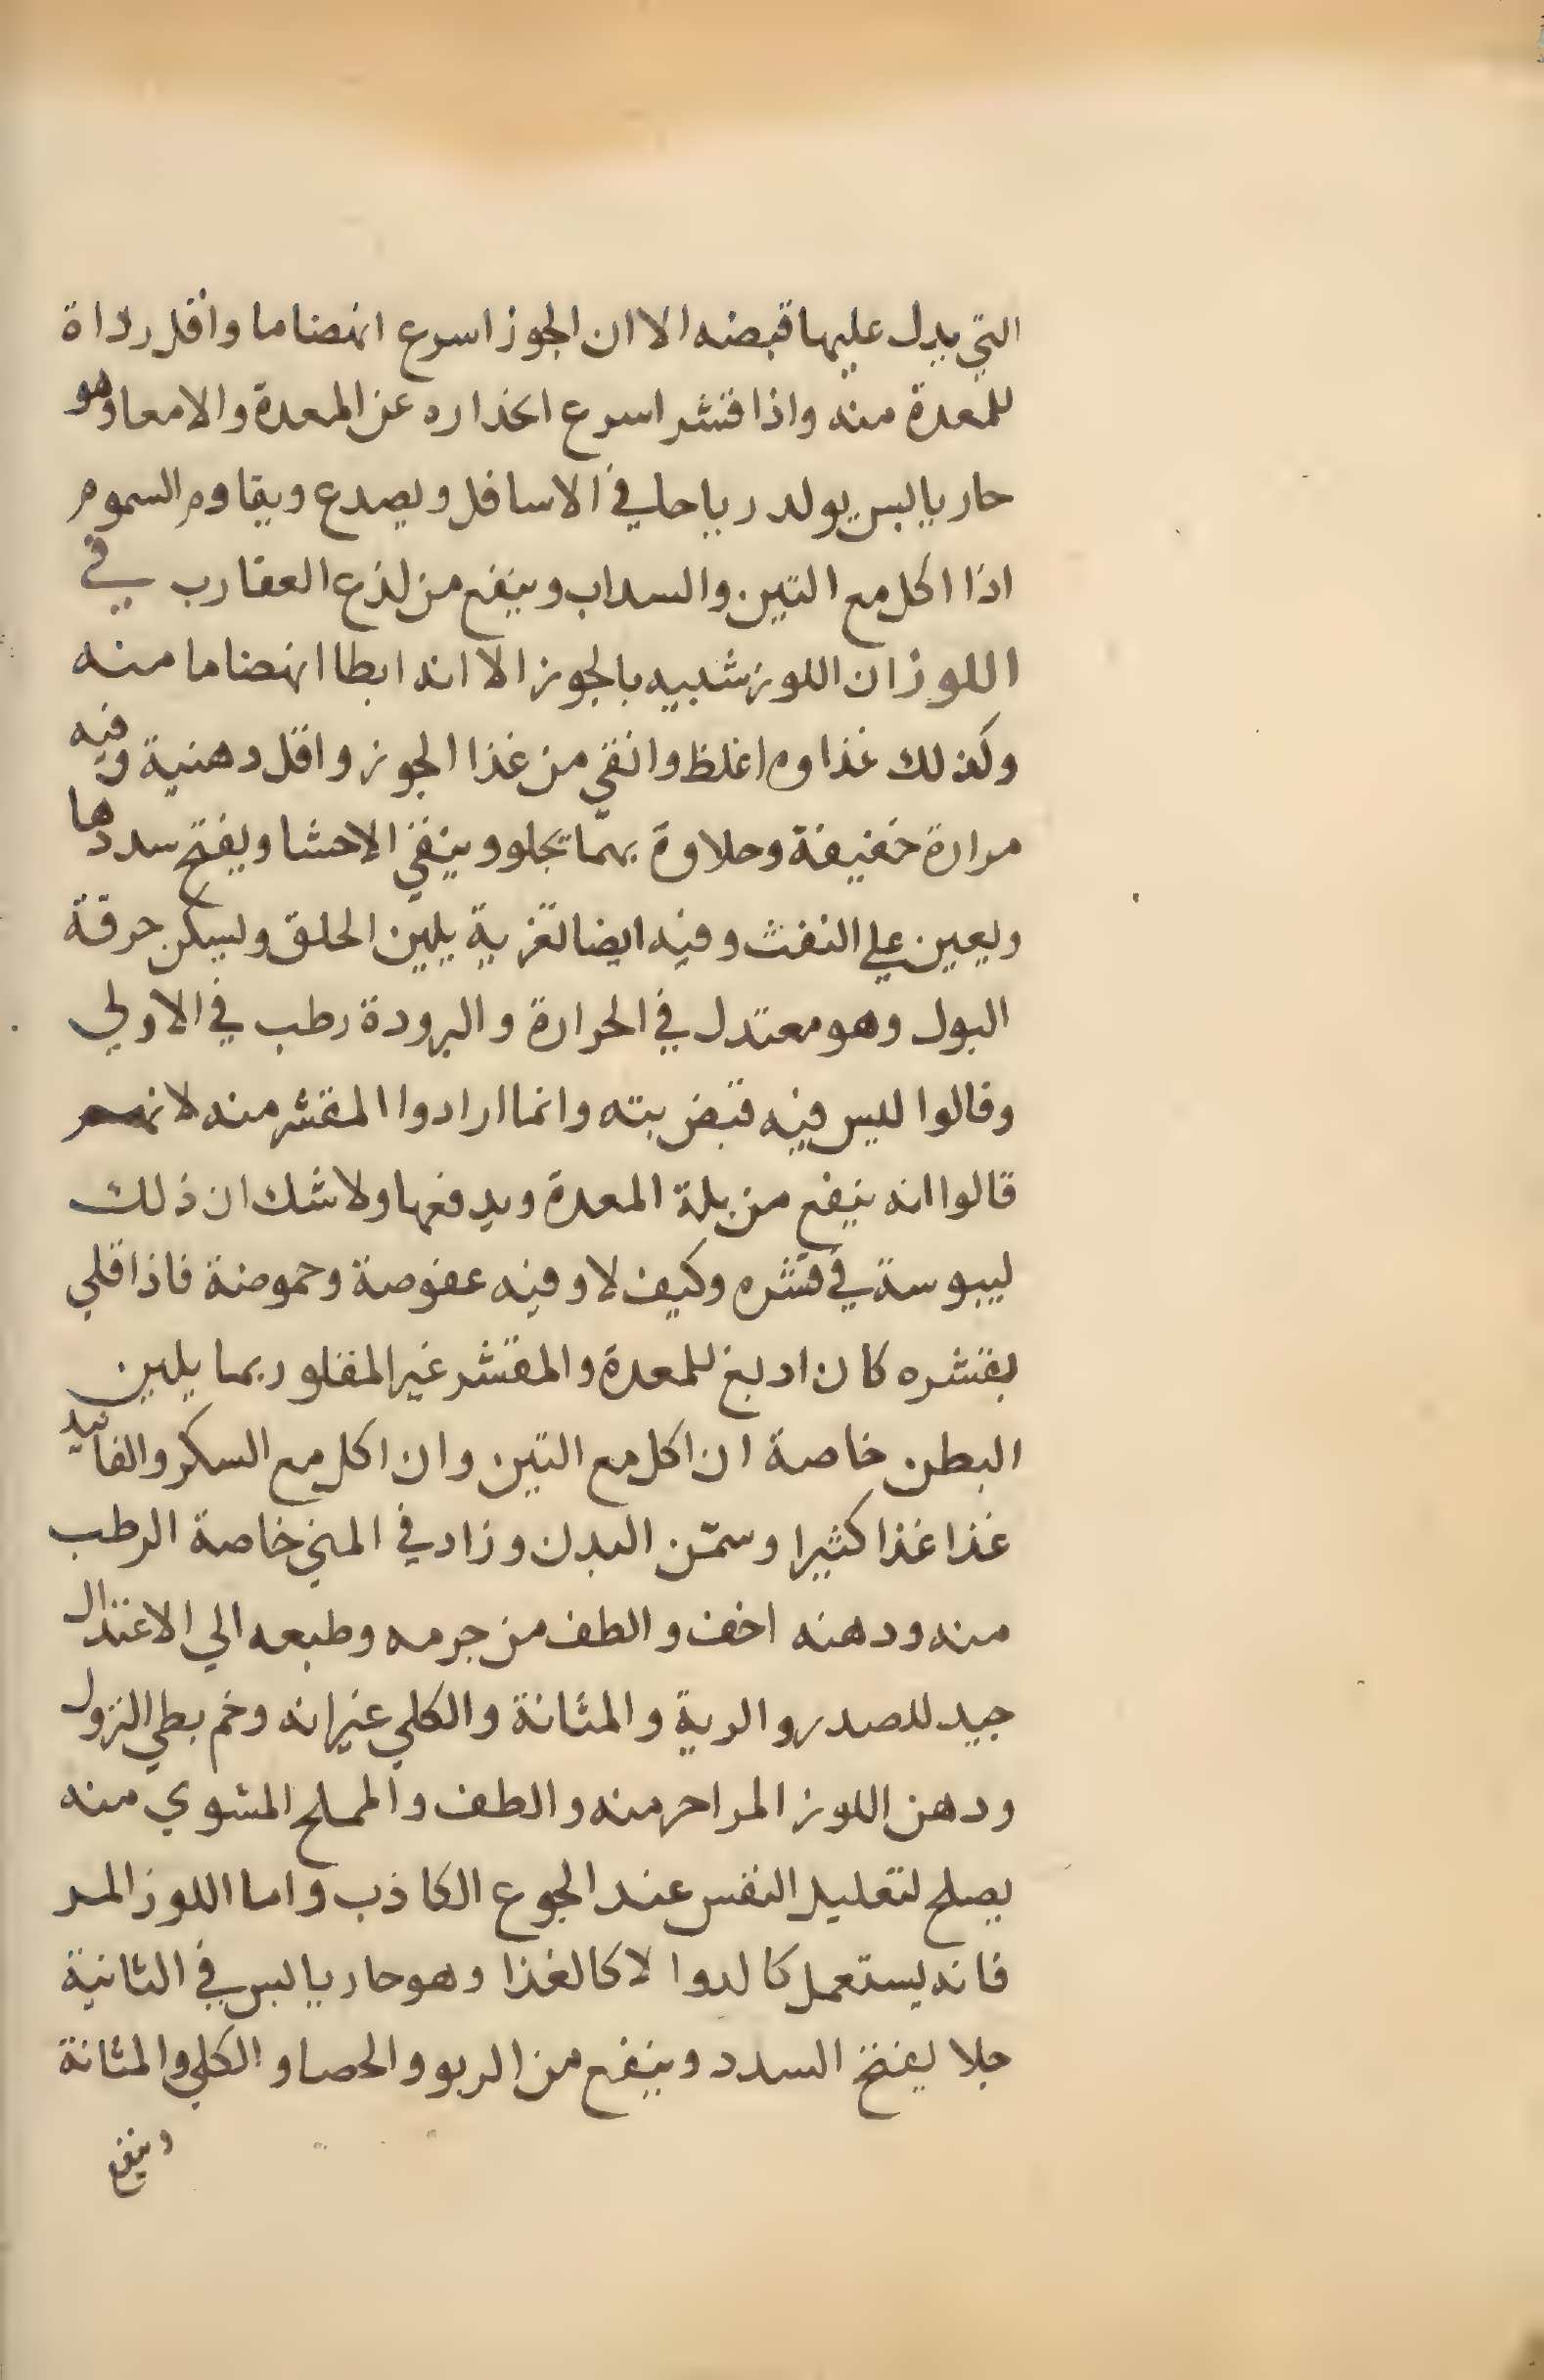 التي يدل عليها قبضه الا ان الجوز اسرع انهضاما واقل رداة
للمعدة منه واذا قشر اسرع انحذاره عن المعدة والامعا وهو
حار يابس يولد رياحا في الاسافل ويصدع ويقاوم السموم
اذا اكل مع التين والسداب وينفع من لذع العقارب في
اللوز ان اللوز شبيه بالجوز الا انه ابطا انهضاما منه
وكذلك غذاوه اغلظ وانقي من غذا الجوز واقل دهنية وفيه
مرارة خفيفة وحلاوة بهما تجلو وينقي الاحشا ويفتح سددها
ويعين علي النفث وفيه ايضا تغرية يلين الحلق ويسكن حرقة
البول وهو معتدل في الحرارة والبرودة رطب في الاولي
وقالوا ليس فيه قبض بته وانما ارادوا المقشر منه لانهم
قالوا انه ينفع من بلة المعدة ويدفعها ولا شك ان ذلك
ليبوسة في قشره وكيف لا وفيه عفوصة وحموضة فاذا قلي
بقشره كان ادبغ للمعدة والمقشر غير المقلو ربما يلين
البطن خاصة ان اكل مع التين وان اكل مع السكر والفانيد
غذا غذا كثيرا وسمّن البدن وزاد في المني خاصة الرطب
منه ودهنه اخف والطف من جرمه وطبعه الي الاعتدال
جيد للصدر والرية والمثانة والكلي غير انه وخم بطي النزول
ودهن اللوز المر احر منه والطف والمملح المشوي منه
يصلح لتعليل النفس عند الجوع الكاذب واما اللوز المر
فانه يستعمل كالدوا لا كالغذا وهو حار يابس في الثانية
جلا يفتح السدد وينفع من الربو والحصا و الكلي والمثانة
وينفع